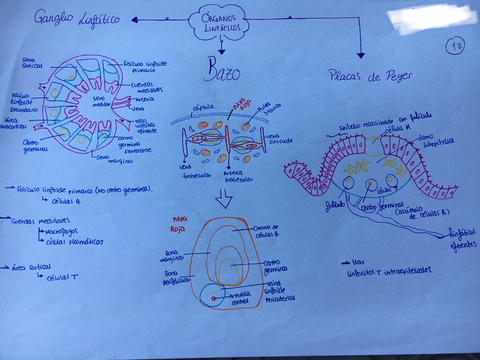 Ganglio Linfático
ÓRGANOS
LINFÁTICOS
10
Seno
cortical
Folículo linfoide
primario
Cuerdas
medulares
Seno
medular
Arteria
Vena
Folículo
linfoide
Secundario
Vaso
linfoide
eferente
Área
paracortical
Centro
germinal
Centro
germinal
Seno
marginal
→ Folículo linfoide primario (No centro germinal).
↳ Células B
→ Cuerdas medulares
↳ Macrófagos
↳ Células Plasmáticas
→ Área cortical
↳ Células T
Bazo
Cápsula
Pulpa
Roja
Pulpa
blanca
Vena
sinusoide
Vena
trabecular
Arteria
trabecular
PULPA
Roja
Corona de
células B
Zona
marginal
Zona
Centro
germinal
Arteriola
central
Vaina
linfoide
Periarterial
Placas de Peyer
Epitelio relacionado con folículo
Célula M
Domo
Folículo
Centro germinal
(acúmulo
de células B)
linfáticos
eferentes
→ Hay
linfocitos T intraepiteliales